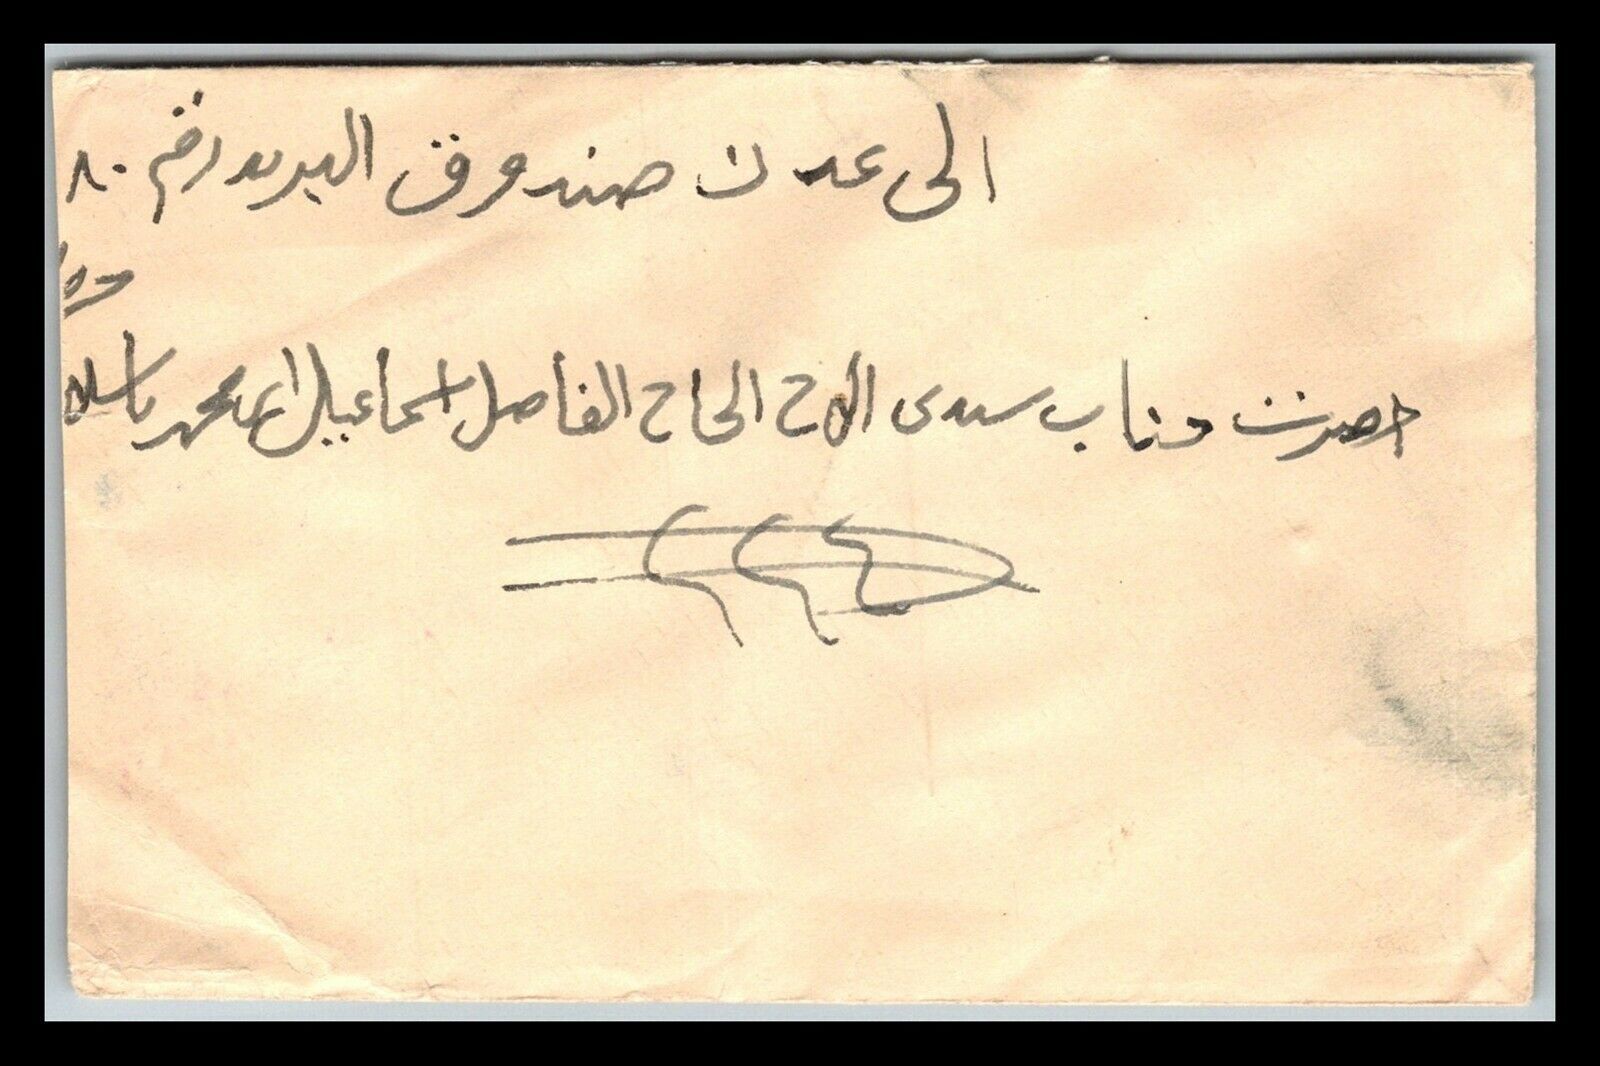 الى عدن صندوق البريد رقم ٨٠
حضرت جناب سيدى الاخ الحاج الفاضل اسماعيل احمد محمد